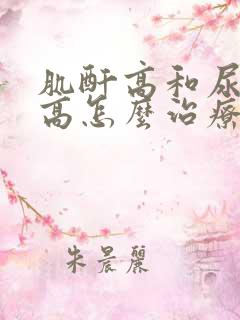 肌酐高和尿
高怎麼治療
朱晨麗